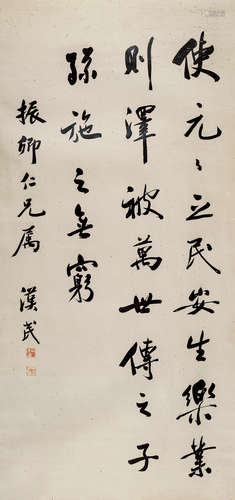 使元〻之民安生樂業
則澤被萬世傳之子
孫施之無窮
振卿仁兄属 漢民